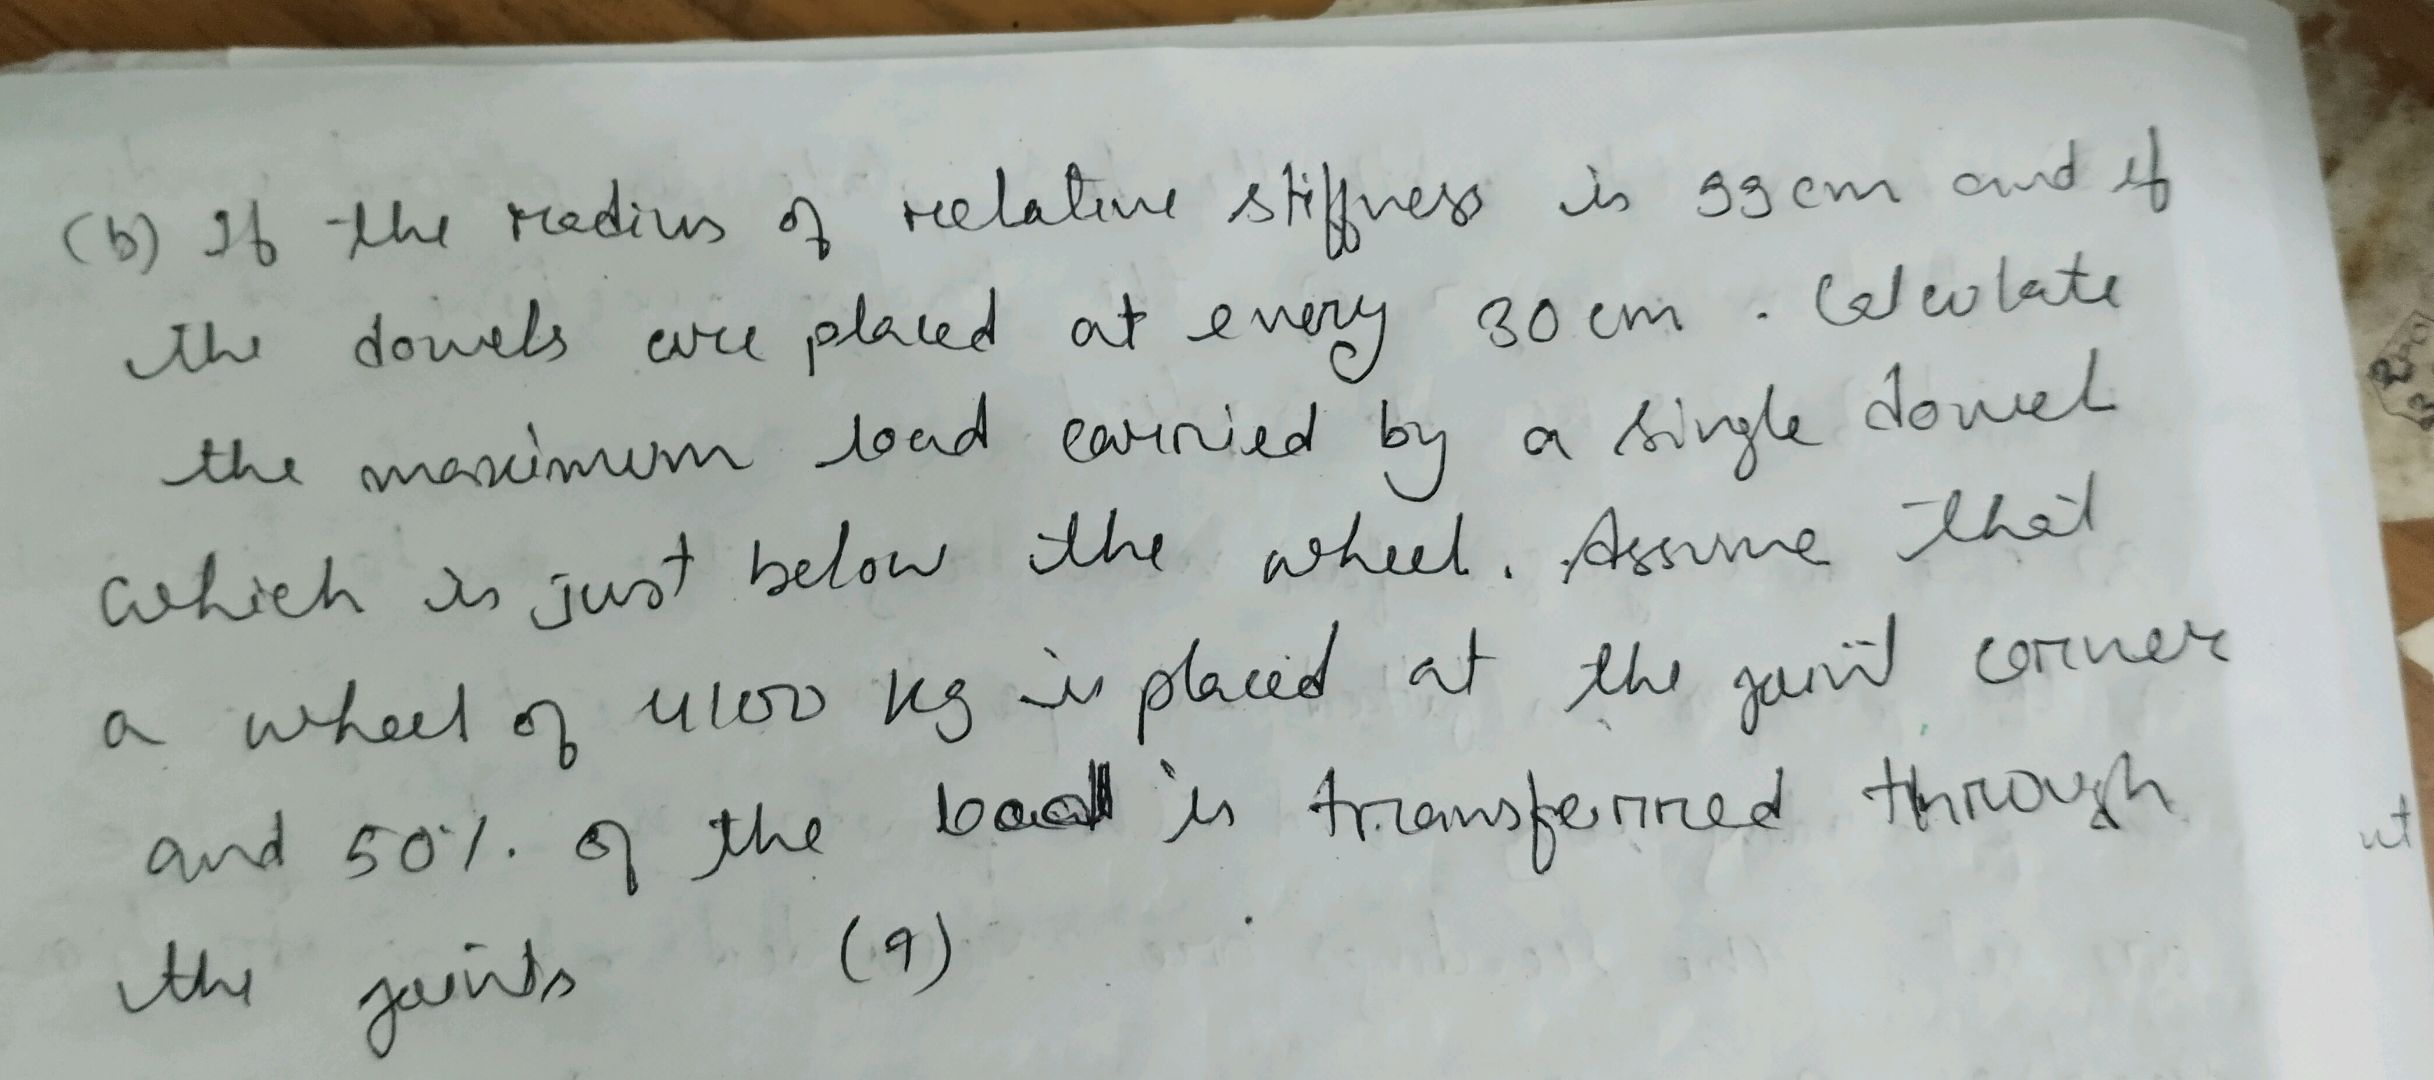 (b) If the radius of relative stiffness is 99 cm and if
the dowels are placed at every 30 cm. Calculate
the maximum load carried by a single dowel
which is just below the wheel. Assume that
a wheel of 4100 kg is placed at the joint corner
and 50%. of the load is transferred through
the joints (9)